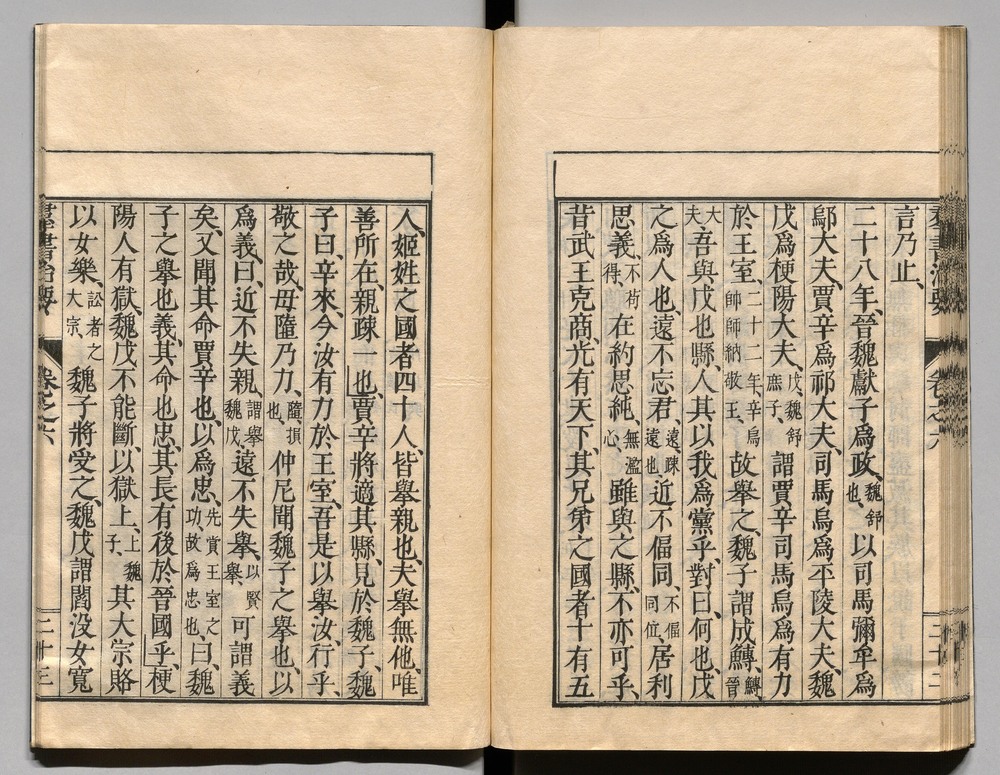 言乃止、
二十八年、晉魏獻子爲政、魏舒也、以司馬彌牟爲
鄔大夫、賈辛爲祁大夫、司馬烏爲平陵大夫、魏
戊爲梗陽大夫、戊、魏舒庶子、謂賈辛司馬烏爲有力
於王室、二十二年、辛烏帥師納敬王、故舉之、魏子謂成鱄、鱄、晉
大夫、吾與戊也縣、人其以我爲黨乎、對曰、何也、戊
之爲人也、遠不忘君、遠、疎遠也、近不偪同、不偪同位、居利
思義、不苟得、在約思純、無濫心、雖與之縣、不亦可乎、
昔武王克商、光有天下、其兄弟之國者十有五
人、姬姓之國者四十人、皆舉親也、夫舉無他、唯
善所在、親疎一也、賈辛將適其縣、見於魏子、魏
子曰、辛來、今汝有力於王室、吾是以舉汝、行乎、
敬之哉、毋隳乃力、隳、損也、仲尼聞魏子之舉也、以
爲義、曰、近不失親、謂舉魏戊、遠不失舉、以賢舉、可謂義
矣、又聞其命賈辛也、以爲忠、先賞王室之功、故爲忠也、曰、魏
子之舉也義、其命也忠、其長有後於晉國乎、梗
陽人有獄、魏戊不能斷、以獄上、上魏子、其大宗賂
以女樂、訟者之大宗、魏子將受之、魏戊謂閻沒女寬
群書治要 卷之六 二十三